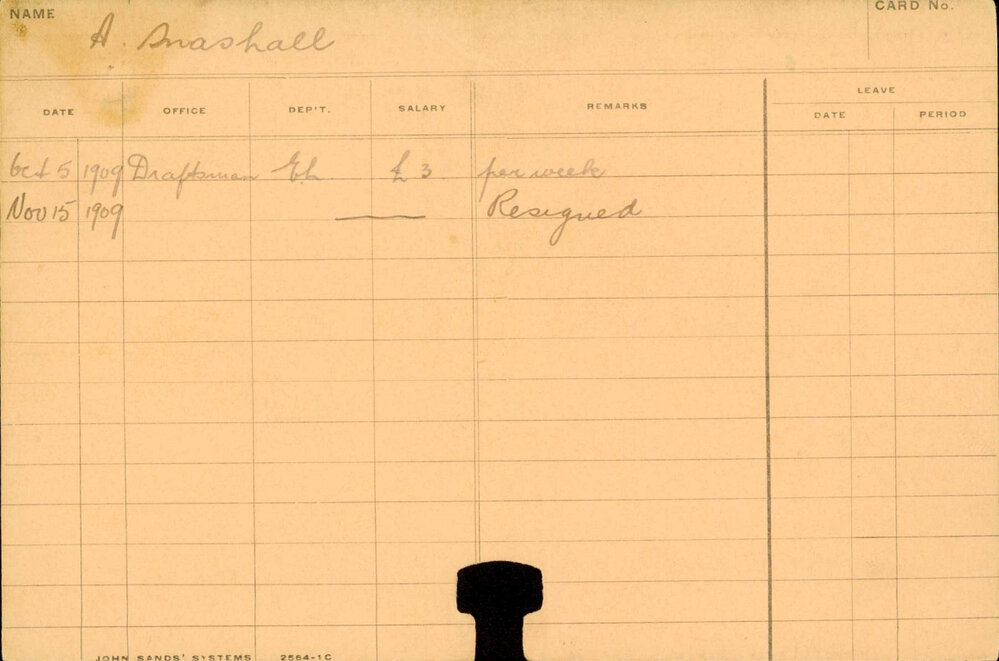 NAME A. Snashall CARD No.
DATE OFFICE DEP'T. SALARY REMARKS LEAVE
DATE PERIOD
Oct 5 1909 Draftsman E.L. £ 3 per week
Nov 15 1909 Resigned
JOHN SANDS' SYSTEMS 2564-1C